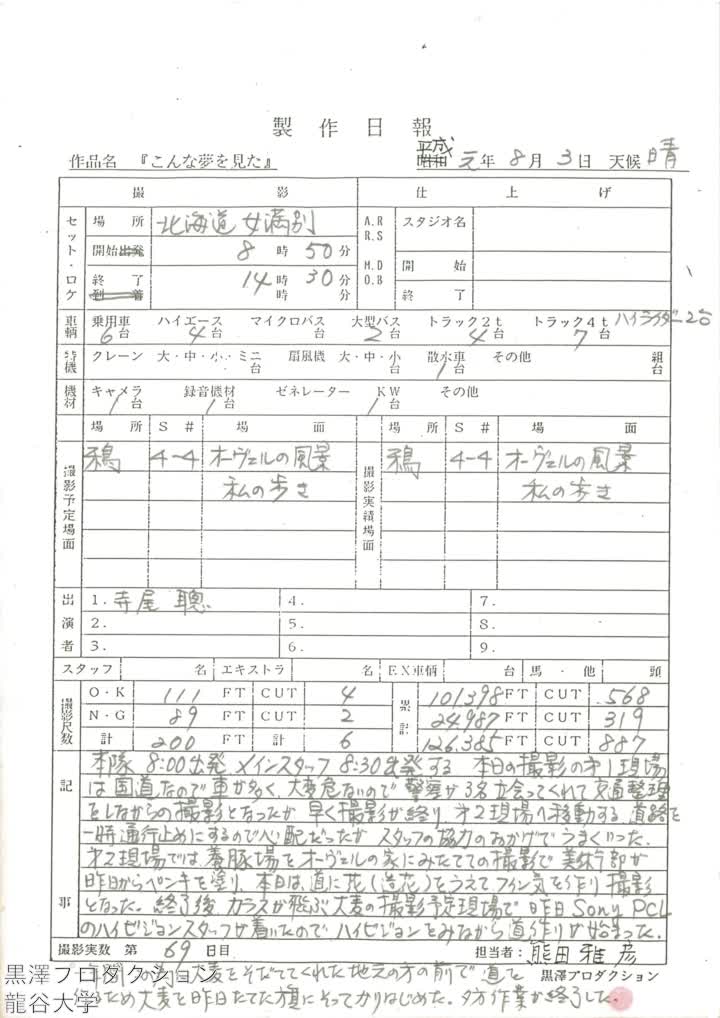 製作日報
作品名 『こんな夢を見た』 平成 昭和 元年 8月 3日 天候 晴
撮影 仕上げ
セット・ロケ 場所 北海道 女満別 A.R R.S スタジオ名
開始 出発 8時 50分 M.D O.B 開始
終了 到着 14時 30分 時 分 終了
車輌 乗用車 6台 ハイエース 4台 マイクロバス 台 大型バス 2台 トラック2t 4台 トラック4t 7台 ハイライダー2台
特機 クレーン 大・中・小・ミニ 台 扇風機 大・中・小 台 散水車 1台 その他 組 台
機材 キャメラ 1台 録音機材 1台 ゼネレーター KW 1台 その他
場所 S# 場面 場所 S# 場面
撮影予定場面 鴉 4-4 オーヴェルの風景 撮影実績場面 鴉 4-4 オーヴェルの風景
私の歩き 私の歩き
出演者 1. 寺尾 聰 4. 7.
2. 5. 8.
3. 6. 9.
スタッフ 名 エキストラ 名 EX車輌 台 馬・他 頭
撮影尺数 O・K 111 FT CUT 4 累計 101398 FT CUT 568
N・G 89 FT CUT 2 24.987 FT CUT 319
計 200 FT 計 6 126.385 FT CUT 887
記 本隊 8:00出発 メインスタッフ 8:30出発する 本日の撮影の才1現場
は国道なので車が多く、大変危ないので警察が3名立会ってくれて交通整理
をしながらの撮影となったが早く撮影が終り、才2現場へ移動する 道路を
一時通行止めにするので心配だったが スタッフの協力のおかげでうまくいった。
才2現場では、養豚場をオーヴェルの家にみたてての撮影で美術部が
昨日からペンキを塗り、本日は、道に花(造花)をうえてフイン気を作り撮影
事 となった。終了後 カラスが飛ぶ大麦の撮影予定現場で昨日 Sony PCL
のハイビジョンスタッフが着いたのでハイビジョンをみながら道作りが始まった。
撮影実数 第 69 日目 担当者: 熊田 雅彦
大麦をそだててくれた地元の方の前で道を 黒澤プロダクション
ため大麦を昨日たてた旗にそってかりはじめた。夕方作業が終了した。
黒澤プロダクション
龍谷大学